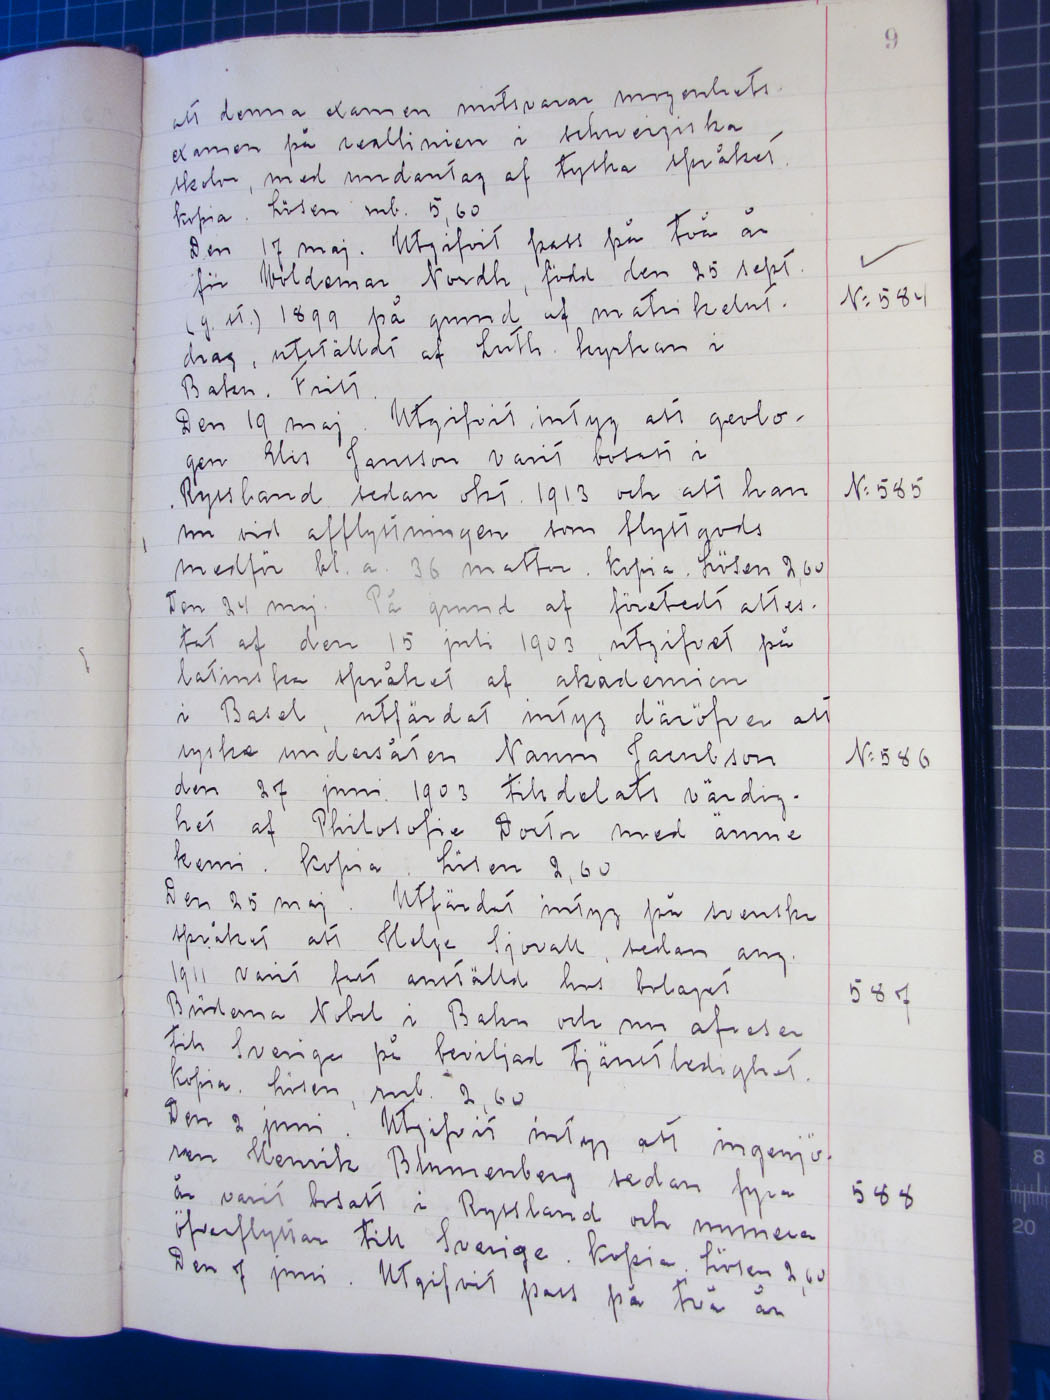 9
att denna examen motsvarar mogenhets-
examen på reallinien i schweiziska
skolor, med undantag af tyska språket.
Kopia. Lösen rub. 5,60
Den 17 maj. Utgifvit pass på två år
för Woldemar Nordh, född den 25 sept.
(g. st.) 1899 på grund af matrikelut- N:584
drag, utställdt af Luth. kyrkan i
Baku. Fritt.
Den 19 maj. Utgifvit intyg att geolo-
gen Elis Jansson varit bosatt i
Ryssland sedan okt. 1913 och att han N:585
nu vid afflyttningen som flyttgods
medför bl. a. 36 mattor. Kopia. Lösen 2,60
Den 24 maj. På grund af företedt attes-
tat af den 15 juli 1903, utgifvet på
latinska språket af akademien
i Basel, utfärdat intyg däröfver att
ryske undersåten Naum Jacobson N:586
den 27 juni 1903 tilldelats värdig-
het af Philosofie Doctor med ämne
kemi. Kopia. Lösen 2,60
Den 25 maj. Utfärdat intyg på svenska
språket att Helge Sjövall, sedan aug.
1911 varit fast anställd hos bolaget 587
Bröderna Nobel i Baku och nu afreser
till Sverige på beviljad tjänstledighet.
Kopia. Lösen, rub. 2,60
Den 2 juni. Utgifvit intyg att ingenjö-
ren Henrik Blumenberg sedan fyra
år varit bosatt i Ryssland och numera 588
öfverflyttar till Sverige. Kopia. Lösen 2,60
Den 7 juni. Utgifvit pass på två år
8
20